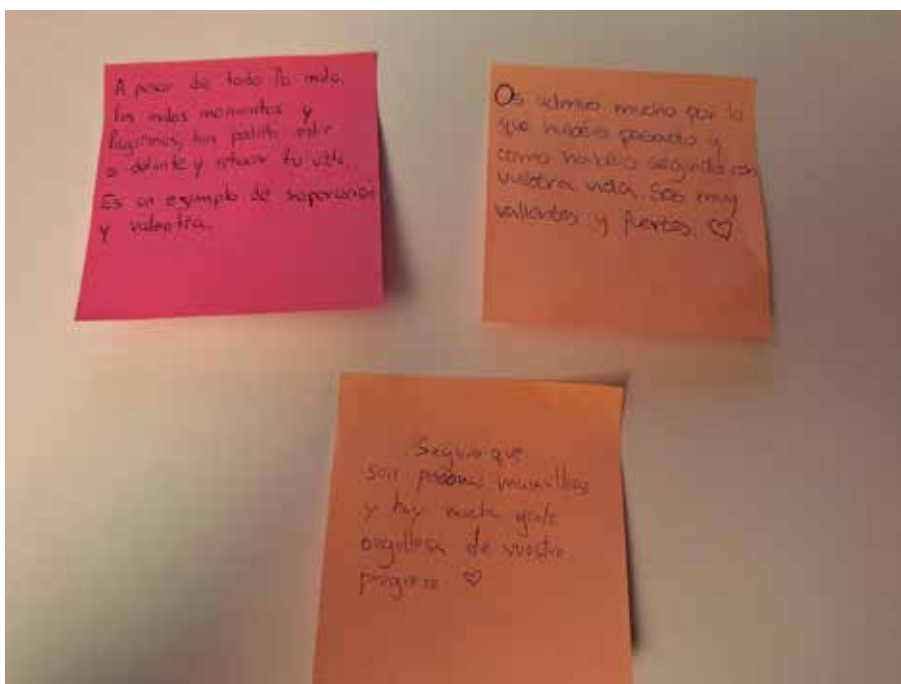 A pesar de todo lo malo,
los malos momentos y
lágrimas, has podido salir
a delante y rehacer tu vida.
Es un ejemplo de superación
y valentía.
Os admiro mucho por lo
que habéis pasado y
como habéis seguido con
vuestra vida. Sois muy
valientes y fuertes. ♡
Seguro que
soir personas maravillosas
y hay mucha gente
orgullosa de vuestro
progreso ♡